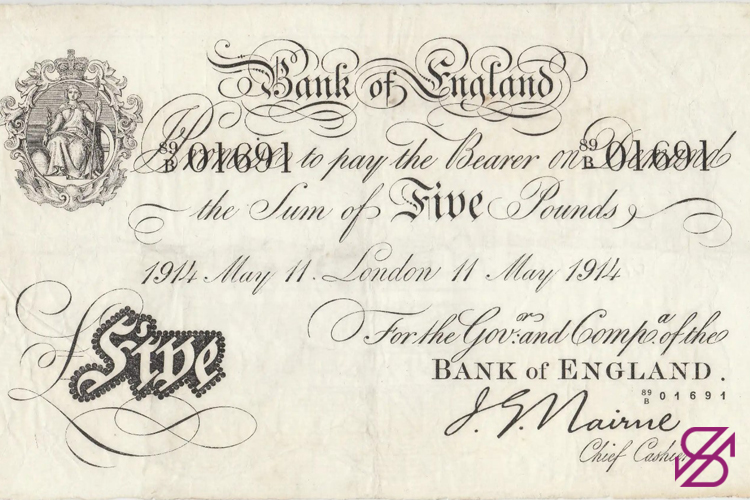 Bank of England
89/B 01691 to pay the Bearer on 89/B 01691
the Sum of Five Pounds
1914 May 11. London 11 May 1914
Five
For the Govr. and Compa. of the
BANK of ENGLAND.
89/B 01691
J. G. Nairne
Chief Cashier